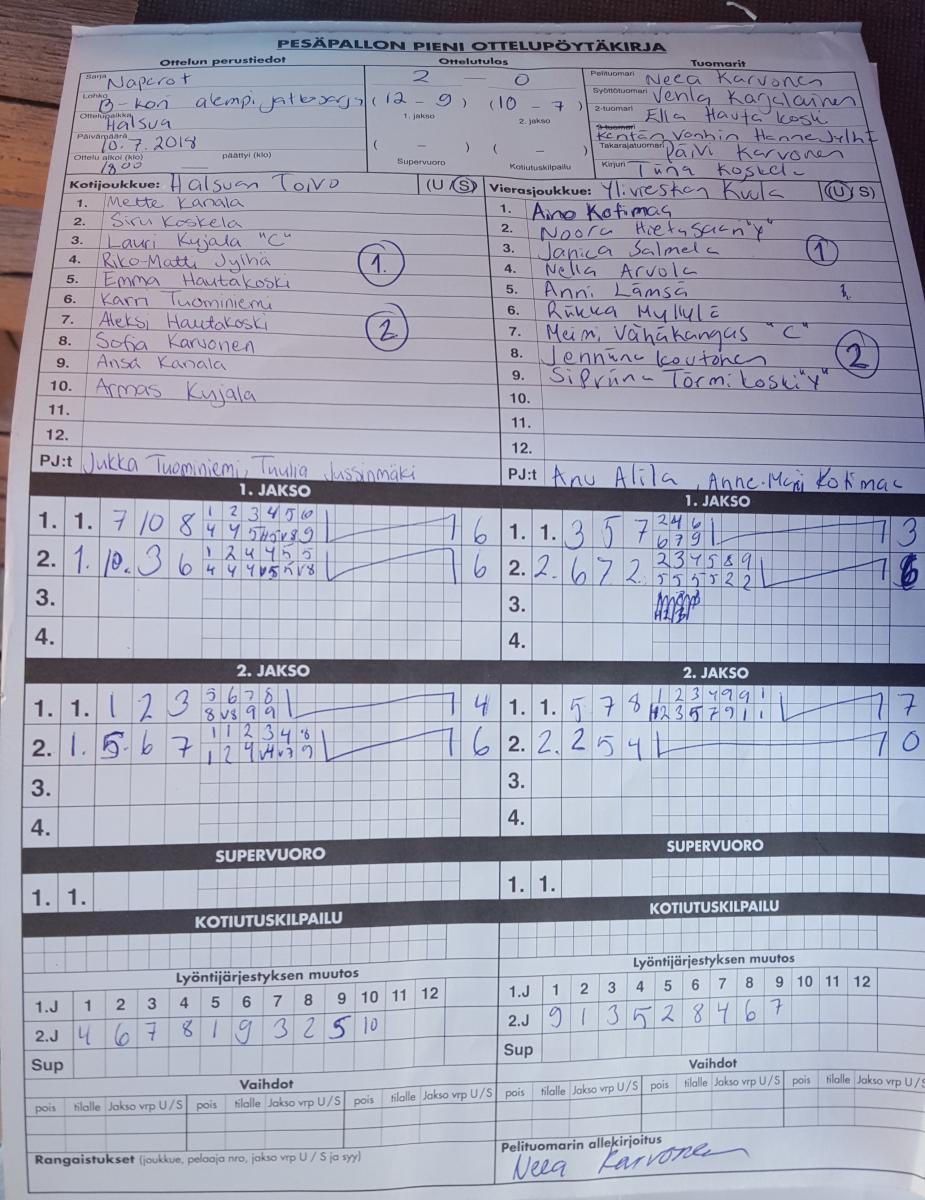 PESÄPALLON PIENI OTTELUPÖYTÄKIRJA
Ottelun perustiedot Ottelutulos Tuomarit
Sarja Naperot 2 - 0 Pelituomari Neea Karvonen
Lohko B-kori alempi jatkosarja (12 - 9) (10 - 7) Syöttötuomari Venla Karjalainen
1. jakso 2. jakso
Ottelupaikka Halsua 2-tuomari Ella Hautakoski
Päivämäärä 10.7.2018 ( - ) ( - ) Kentän vanhin Hanne Jylhä
Ottelu alkoi (klo) 1800 päättyi (klo) Supervuoro Kotiutuskilpailu Takarajatuomari Päivi Karvonen
Kirjuri Tiina Koskela
Kotijoukkue: Halsuan Toivo (U / S) Vierasjoukkue: Ylivieskan Kuula (U / S)
1. Mette Kanala 1. Aino Kotimaa
2. Siru Koskela 2. Noora
3. Lauri Kujala "C" 3. Janica Salmela 1
4. Riko-Matti Jylhä 1. 4. Nella Arvola
5. Emma Hautakoski 5. Anni Lämsä
6. Karri Tuominiemi 6. Riikka Myllylä
7. Aleksi Hautakoski 2 7. Meimi Vähäkangas "C"
8. Sofia Karvonen 8. Jenniina Koutonen 2
9. Ansa Kanala 9. Sipriina Törmikoski "Y"
10. Armas Kujala 10.
11. 11.
12. 12.
PJ:t Jukka Tuominiemi, Tuulia Jussinmäki PJ:t Anu Alila, Anne-Mari Kotimaa
1. JAKSO 1. JAKSO
1. 1. 7 10 8 6 1. 1. 3 5 7 2 4 6 3
6 7 9
2. 1. 10. 3 6 1 2 4 4 5 5 6 2. 2. 6 7 2. 2 3 4 5 8 9
5 5 5 5 2 2
3. 3.
4. 4.
2. JAKSO 2. JAKSO
1. 1. 1 2 3 5 6 7 8 4 1. 1. 5 7 8 1 2 3 4 9 9 1 7
8 v8 9 9
2. 1. 5. 6 7 1 1 2 3 4 8 6 2. 2. 2 5 4 0
1 2 4 v4 v3 9
3. 3.
4. 4.
SUPERVUORO SUPERVUORO
1. 1. 1. 1.
KOTIUTUSKILPAILU KOTIUTUSKILPAILU
Lyöntijärjestyksen muutos Lyöntijärjestyksen muutos
1.J 1 2 3 4 5 6 7 8 9 10 11 12 1.J 1 2 3 4 5 6 7 8 9 10 11 12
2.J 4 6 7 8 1 9 3 2 5 10 2.J 9 1 3 5 2 8 4 6 7
Sup Sup
Vaihdot Vaihdot
pois tilalle Jakso vrp U / S pois tilalle Jakso vrp U / S pois tilalle Jakso vrp U / S pois tilalle Jakso vrp U / S pois tilalle Jakso vrp U / S pois tilalle Jakso vrp U / S
Rangaistukset (joukkue, pelaaja nro, jakso vrp U / S ja syy) Pelituomarin allekirjoitus
Neea Karvonen